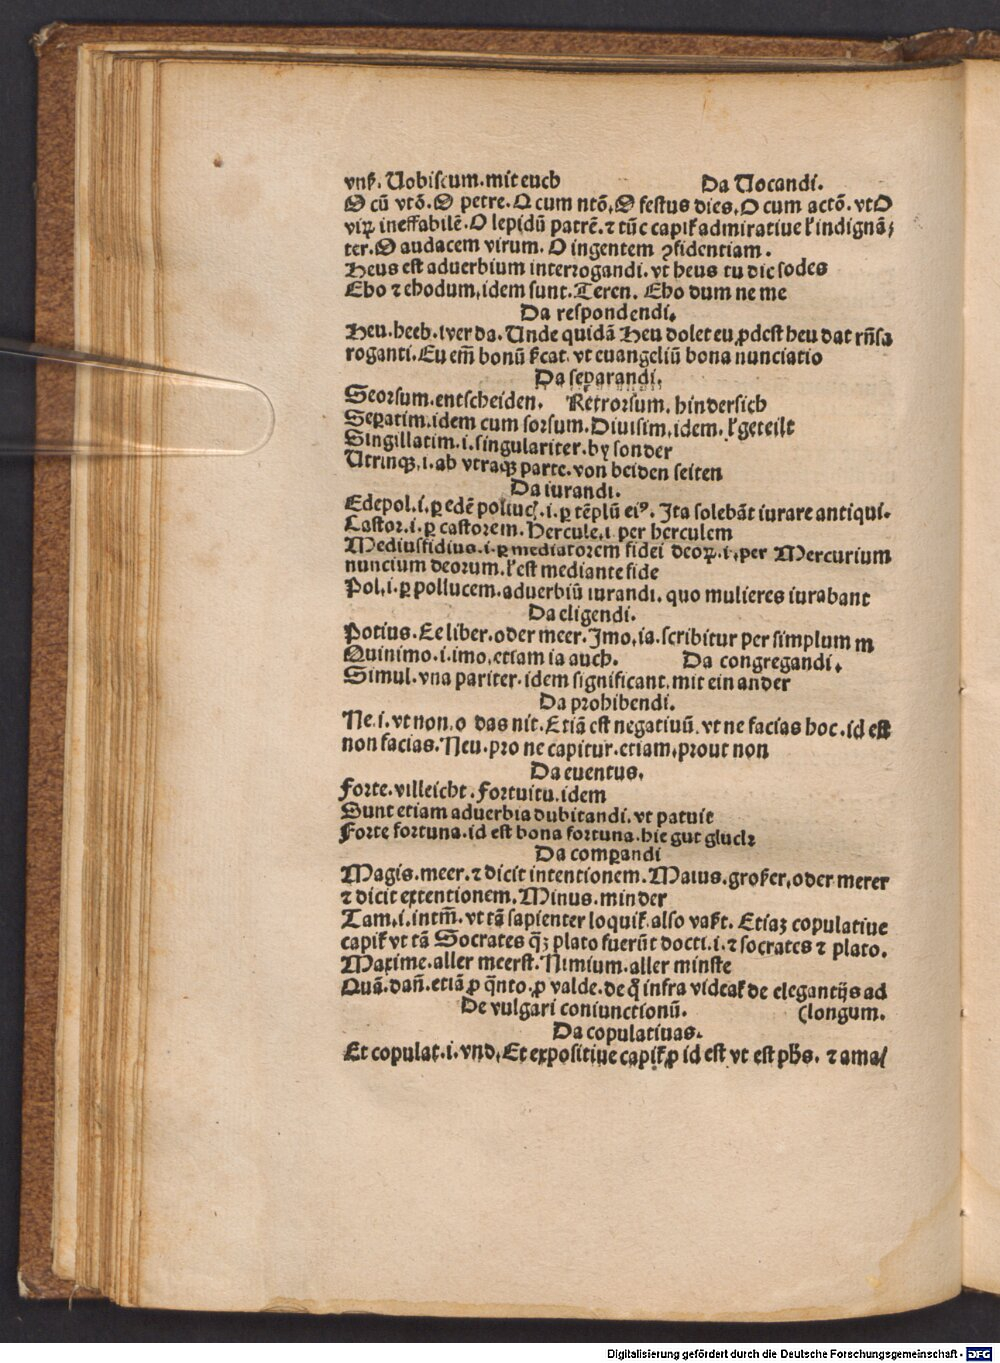 vnß. Uobiscum.mit euch Da Uocandi.
O cū vtō. O petre. O cum ntō. O festus dies. O cum actō. vt O
viꝝ ineffabilē. O lepidū patrē. ⁊ tūc capiť admiratiue ľ indignā⸗
ter. O audacem virum. O ingentem ꝯfidentiam.
Heus est aduerbium interrogandi. vt heus tu dic sodes
Eho ⁊ ehodum, idem sunt. Teren. Eho dum ne me
Da respondendi.
Heu. heeh. wer da. Unde quidā Heu dolet eu ꝓdest heu dat rñsa
roganti. Eu em̄ bonū ẜcat. vt euangeliū bona nunciatio
Da seꝑarandi.
Seorsum. entscheiden. Retrorsum. hindersich
Seꝑatim. idem cum sorsum. Diuisim, idem. ľ geteilt
Singillatim. i. singulariter. by sonder
Utrinqꝫ, i. ab vtraqꝫ parte. von beiden seiten
Da iurandi.
Edepol. i. ꝑ edē polluc. i. ꝑ tēplū eiꝰ. Ita solebāt iurare antiqui.
Castor. i. ꝑ castorem. Hercule. i. per herculem
Mediusfidius. i. ꝑ mediatorem fidei deoꝝ. i. per Mercurium
nuncium deorum. ľ est mediante fide
Pol, i. ꝑ pollucem. aduerbiū iurandi. quo mulieres iurabant
Da eligendi.
Potius. Ee liber. oder meer. Imo, ia. scribitur per simplum m
Quinimo. i. imo, etiam ia auch. Da congregandi.
Simul. vna pariter. idem significant. mit ein ander
Da prohibendi.
Ne. i. vt non. o das nit. Etiā est negatiuū. vt ne facias hoc. id est
non facias. Neu. pro ne capitur. etiam, prout non
Da euentus.
Forte. villeicht. Fortuitu. idem
Sunt etiam aduerbia dubitandi. vt patuit
Forte fortuna. id est bona fortuna. hie gut gluck
Da comꝑandi
Magis. meer. ⁊ dicit intentionem. Maius. großer, oder merer
⁊ dicit extentionem. Minus. minder
Tam, i. intm̄. vt tā sapienter loquiť. also vaßt. Etiaꝫ copulatiue
capiť vt tā Socrates q̄ꝫ plato fuerūt docti. i. ⁊ socrates ⁊ plato.
Maxime. aller meerst. Nimium. aller minste
Quā. dañ. etiā ꝓ q̄nto. ꝓ valde. de q̄ infra videať de elegantijs ad
De vulgari coniunctionū. (longum.
Da copulatiuas.
Et copulat. i. vnd, Et expositiue capiť ꝓ id est vt est pħs. ⁊ ama⸗